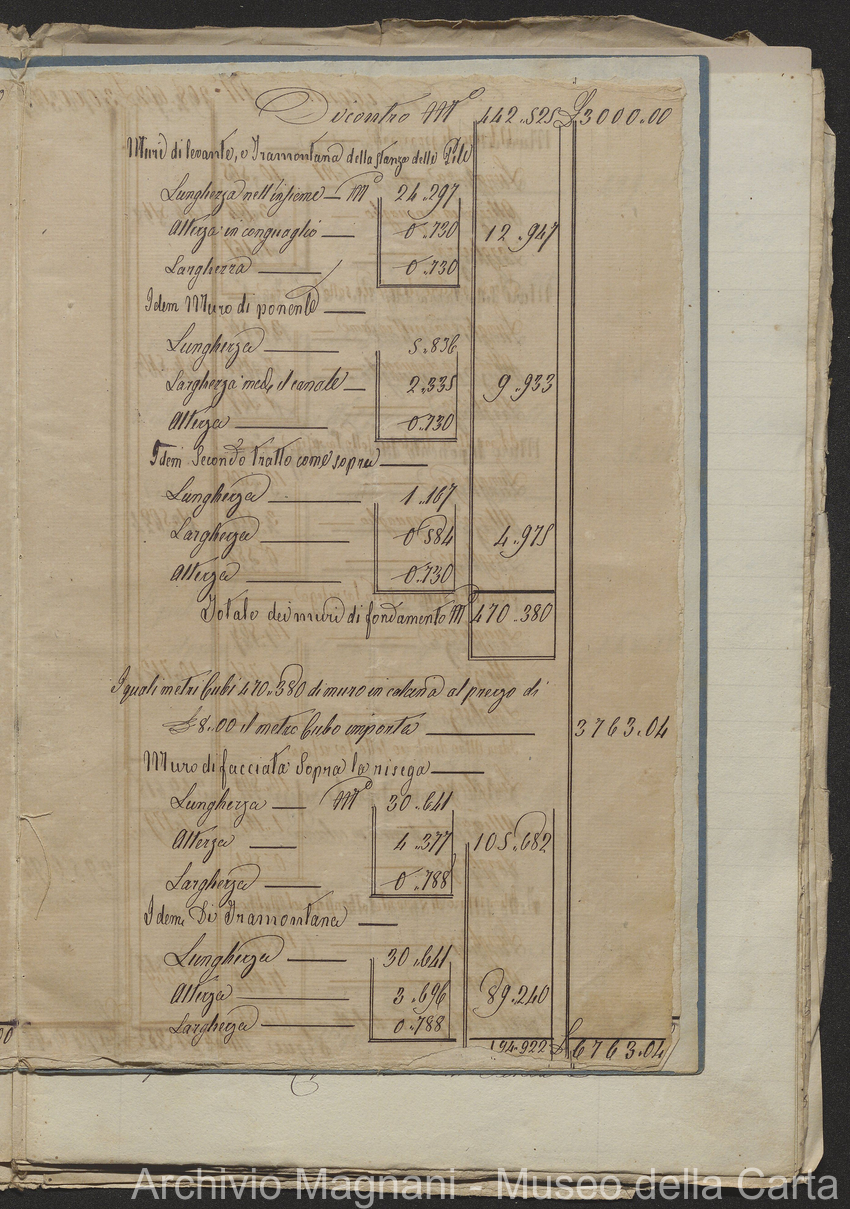 Di contro Mº 442.525 £ 3000.00
Muri di levante, e Tramontana della stanza delle Pile
Lunghezza nell'insieme — Mº 24.297
Altezza in conguaglio — 0.730 12.947
Larghezza — 0.730
Idem Muro di ponente —
Lunghezza — 5.836
Larghezza med. il canale — 2.335 9.933
Altezza — 0.730
Idem Secondo tratto come sopra —
Lunghezza — 1.167
Larghezza — 0.584 4.975
Altezza — 0.730
Totale dei muri di fondamento Mº 470.380
I quali metri Cubi 470.380 di muro in calcina al prezzo di
£ 8.00 il metro Cubo importa — 3763.04
Muro di facciata Sopra la risega —
Lunghezza — Mº 30.641
Altezza — 4.377 105.682
Larghezza — 0.788
Idem Di Tramontana —
Lunghezza — 30.641
Altezza — 3.696 89.240
Larghezza — 0.788
194.922 £ 6763.04
Archivio Magnani - Museo della Carta